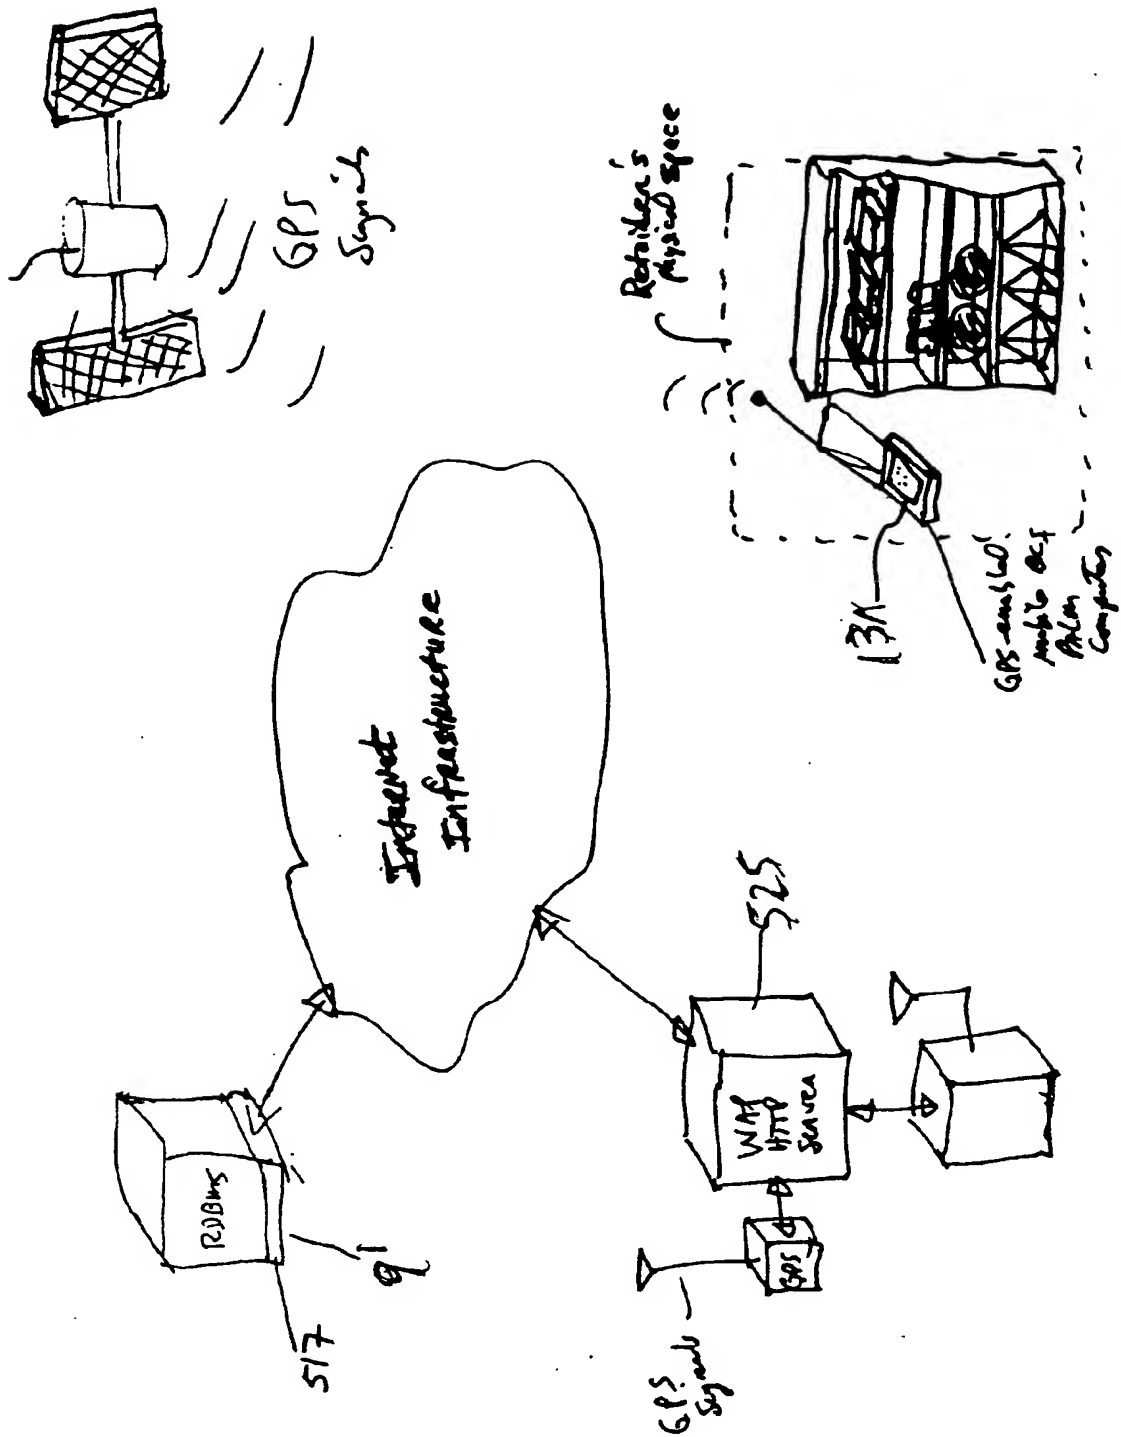 GPS
Signals
Retailer's
physical space
Internet
Infrastructure
13A
GPS-enabled
mobile
PALM
Computer
525
WAP
HTTP
Server
RDBMS
9'
517
GPS
GPS
Signals